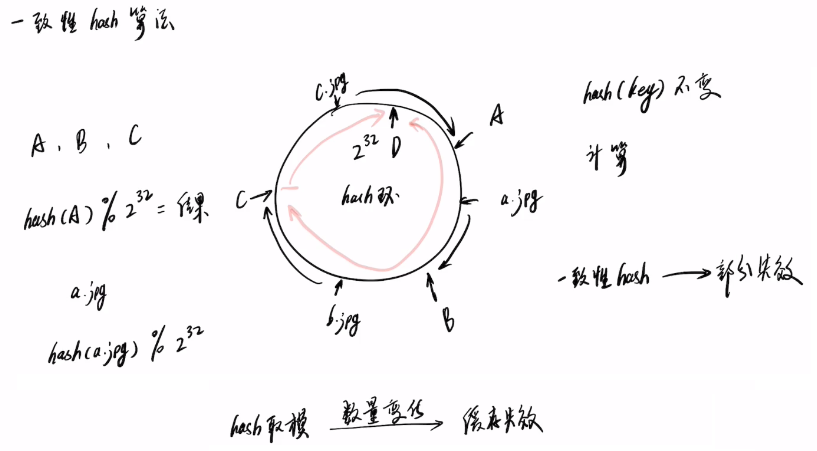 一致性 hash 算法
A , B , C
hash(A) % 2^32 = 结果
a.jpg
hash(a.jpg) % 2^32
c.jpg
A
2^32
D
C
hash环
a.jpg
b.jpg
B
hash(key) 不变
计算
一致性 hash → 部分失效
hash 取模 数量变化 → 缓存失效